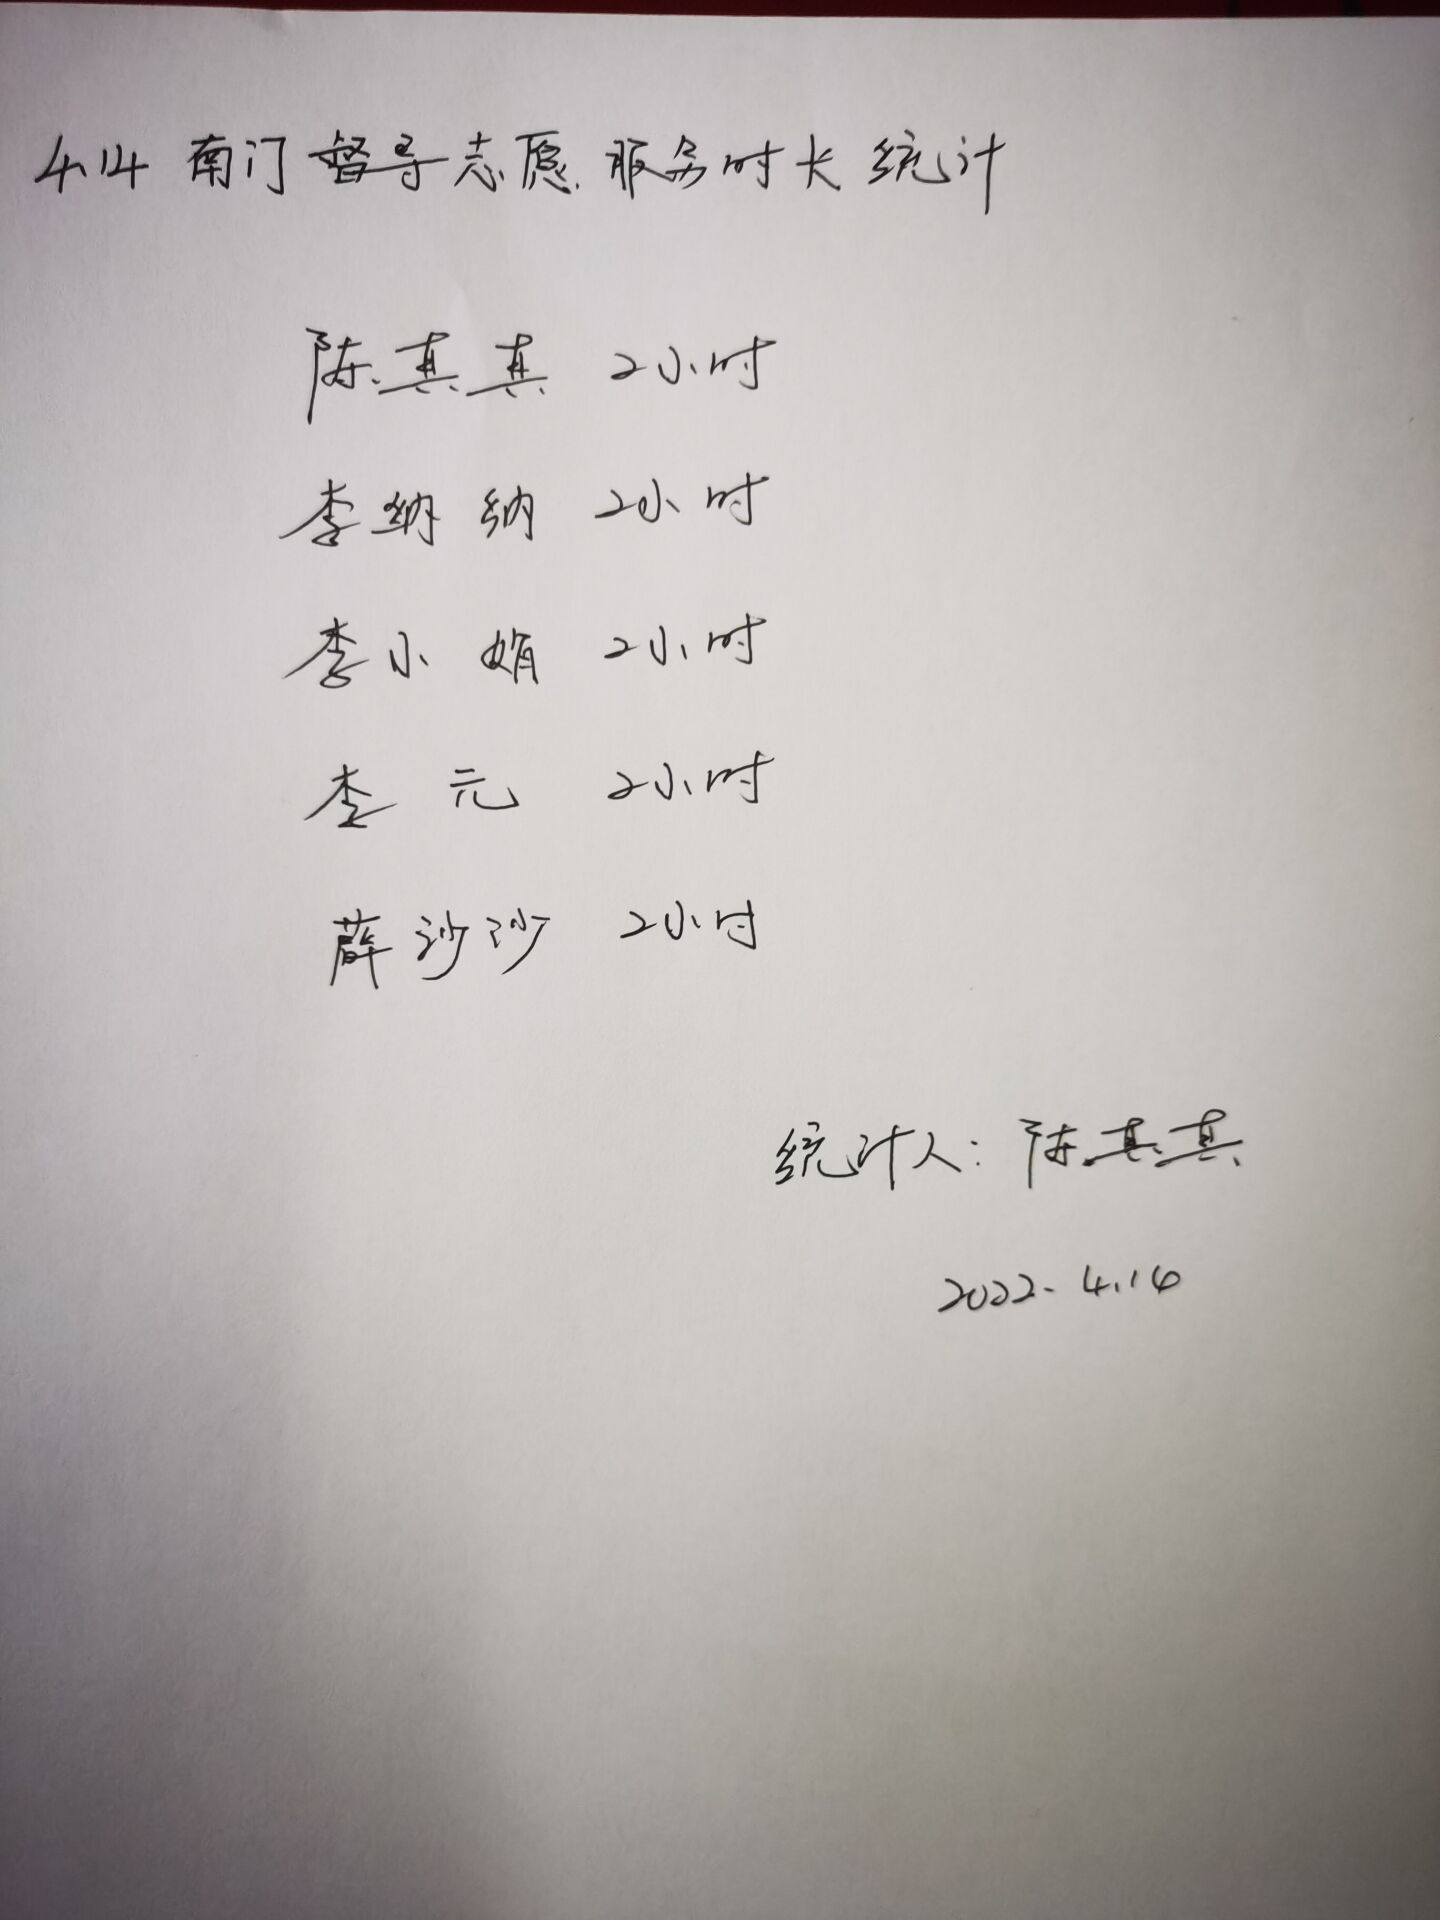 4.14 南门督导志愿服务时长统计
陈真真 2小时
李纳纳 2小时
李小娟 2小时
李元 2小时
薛沙沙 2小时
统计人：陈真真
2022.4.14